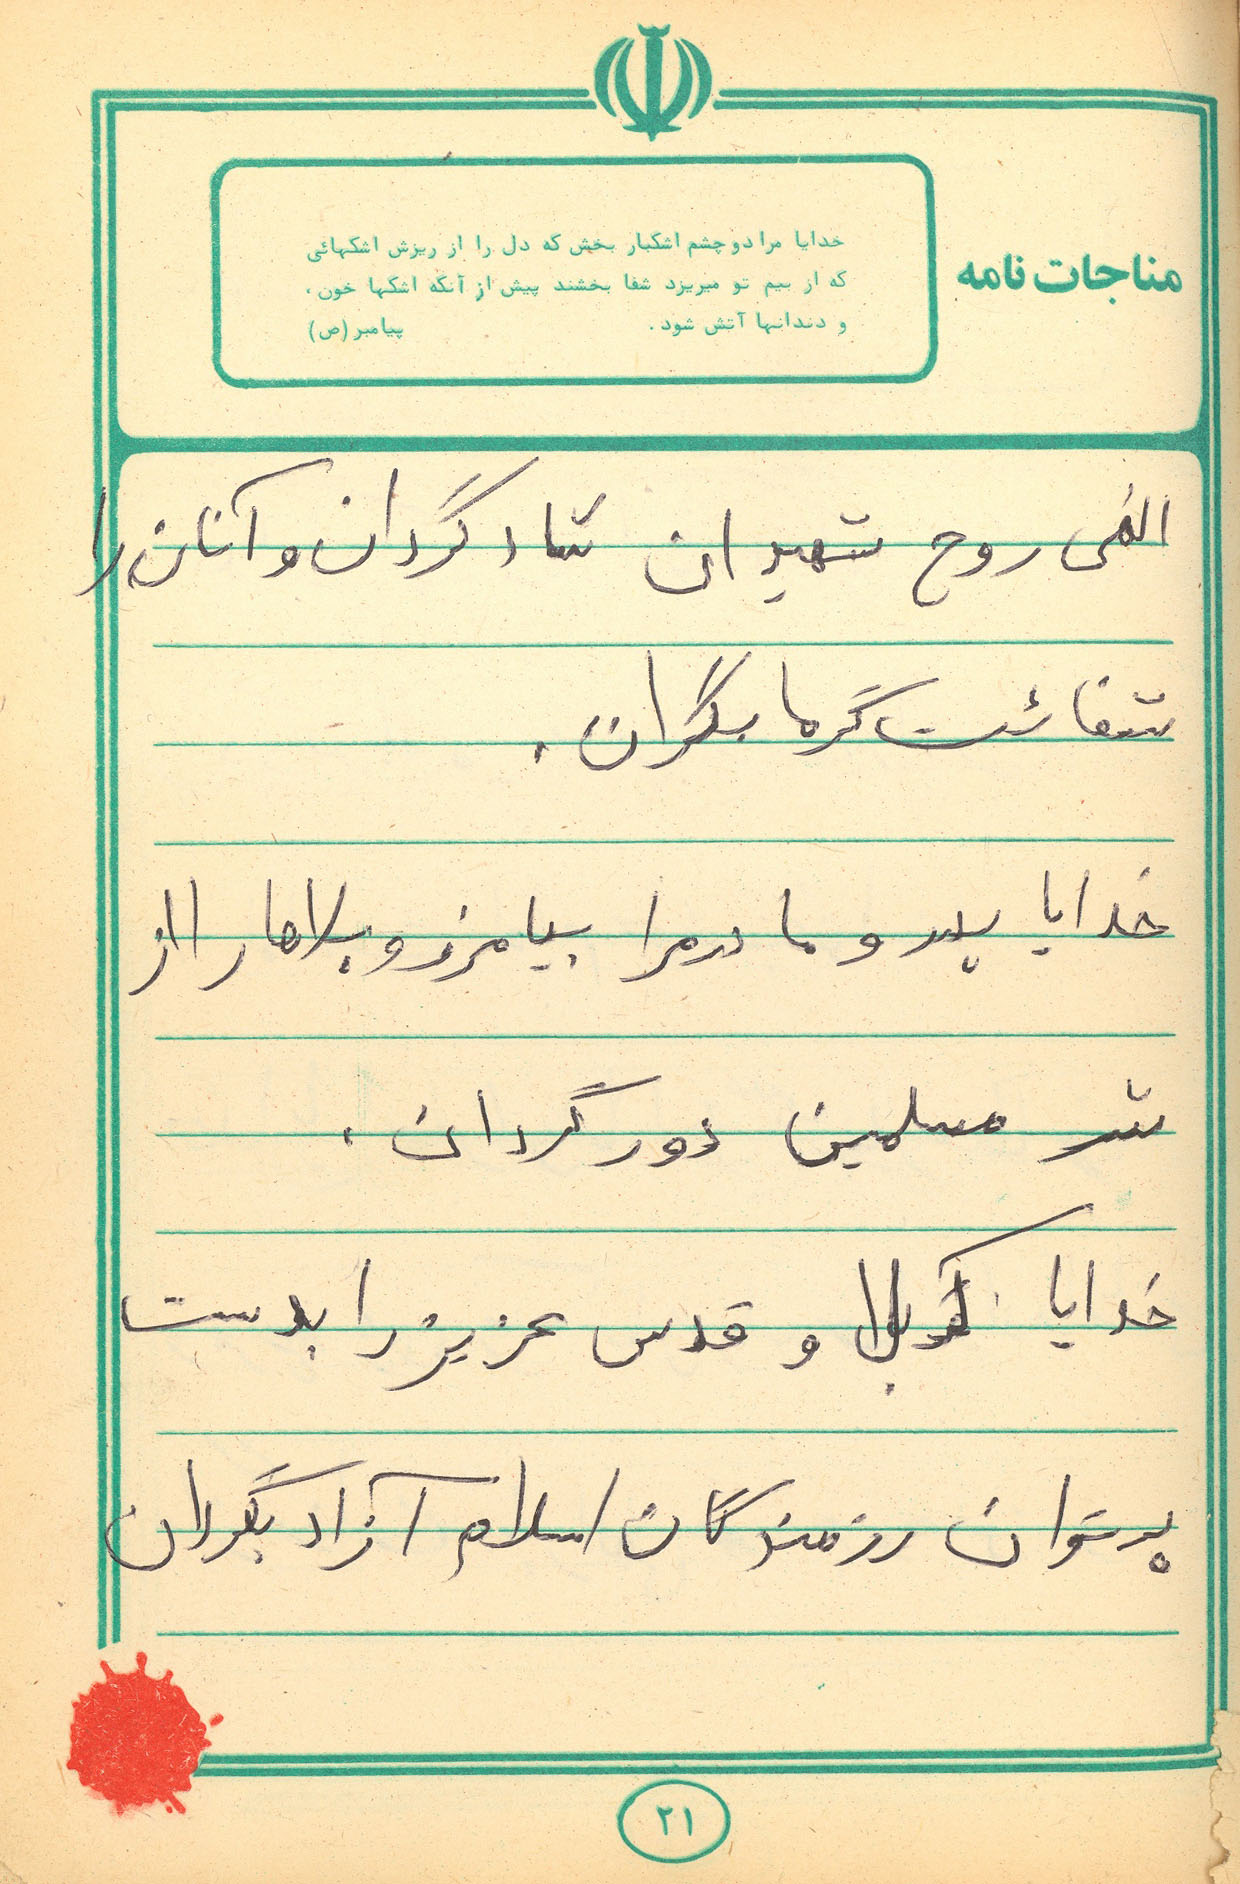 مناجات نامه
خدایا مرا دو چشم اشکبار بخش که دل را از ریزش اشکهائی
که از بیم تو میریزد شفا بخشند پیش از آنکه اشکها خون،
و دندانها آتش شود. پیامبر (ص)
الهی روح شهیدان شاد گردان و آنان را
شفائت گرما بگران.
خدایا پدر و مادر مرا بیامرز و بلاها را از
شر مسلمین دور گردان.
خدایا کربلا و قدس عزیز را بدست
پرتوان رزمندگان اسلام آزاد بگردان
۲۱